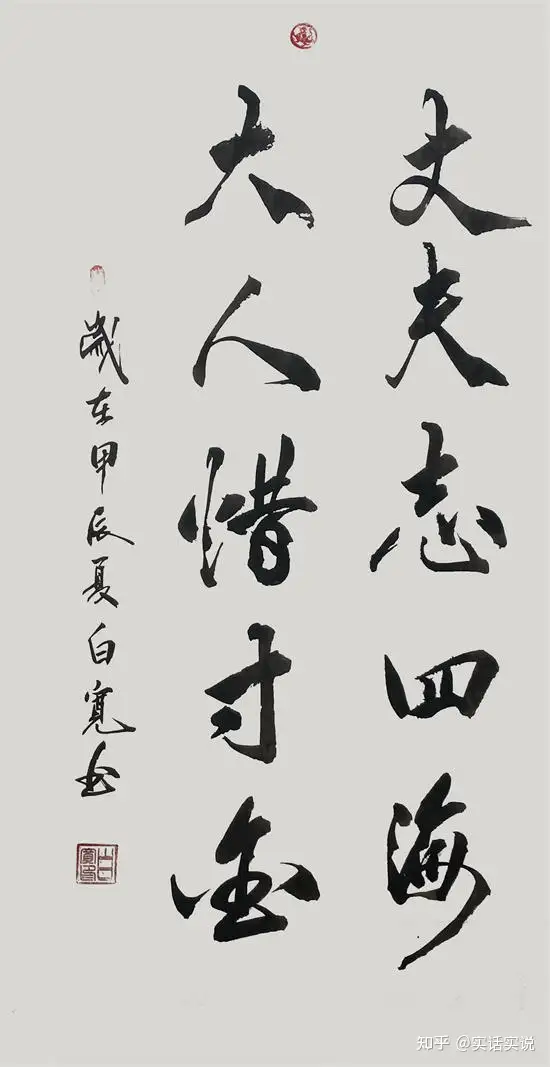 丈夫志四海
大人惜寸金
歲在甲辰夏白寬书
知乎 @实话实说